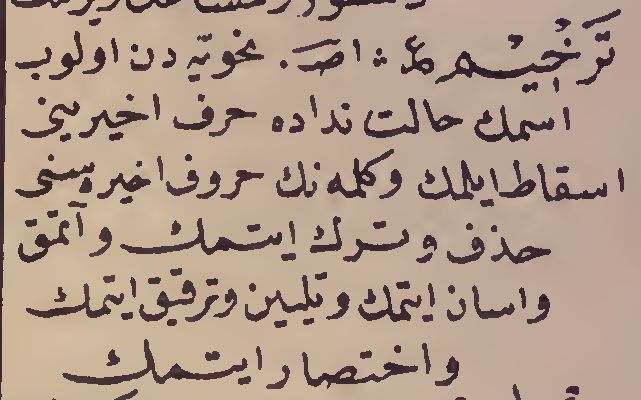 ترخيم ع : اصـ . نحويه دن اولوب
اسمك حالت نداده حرف اخيريني
اسقاط ايلمك وكلمه نك حروف اخيره سني
حذف وترك ايتمك و آتمق
واسان ايتمك وتليين وترقيق ايتمك
واختصار ايتمك